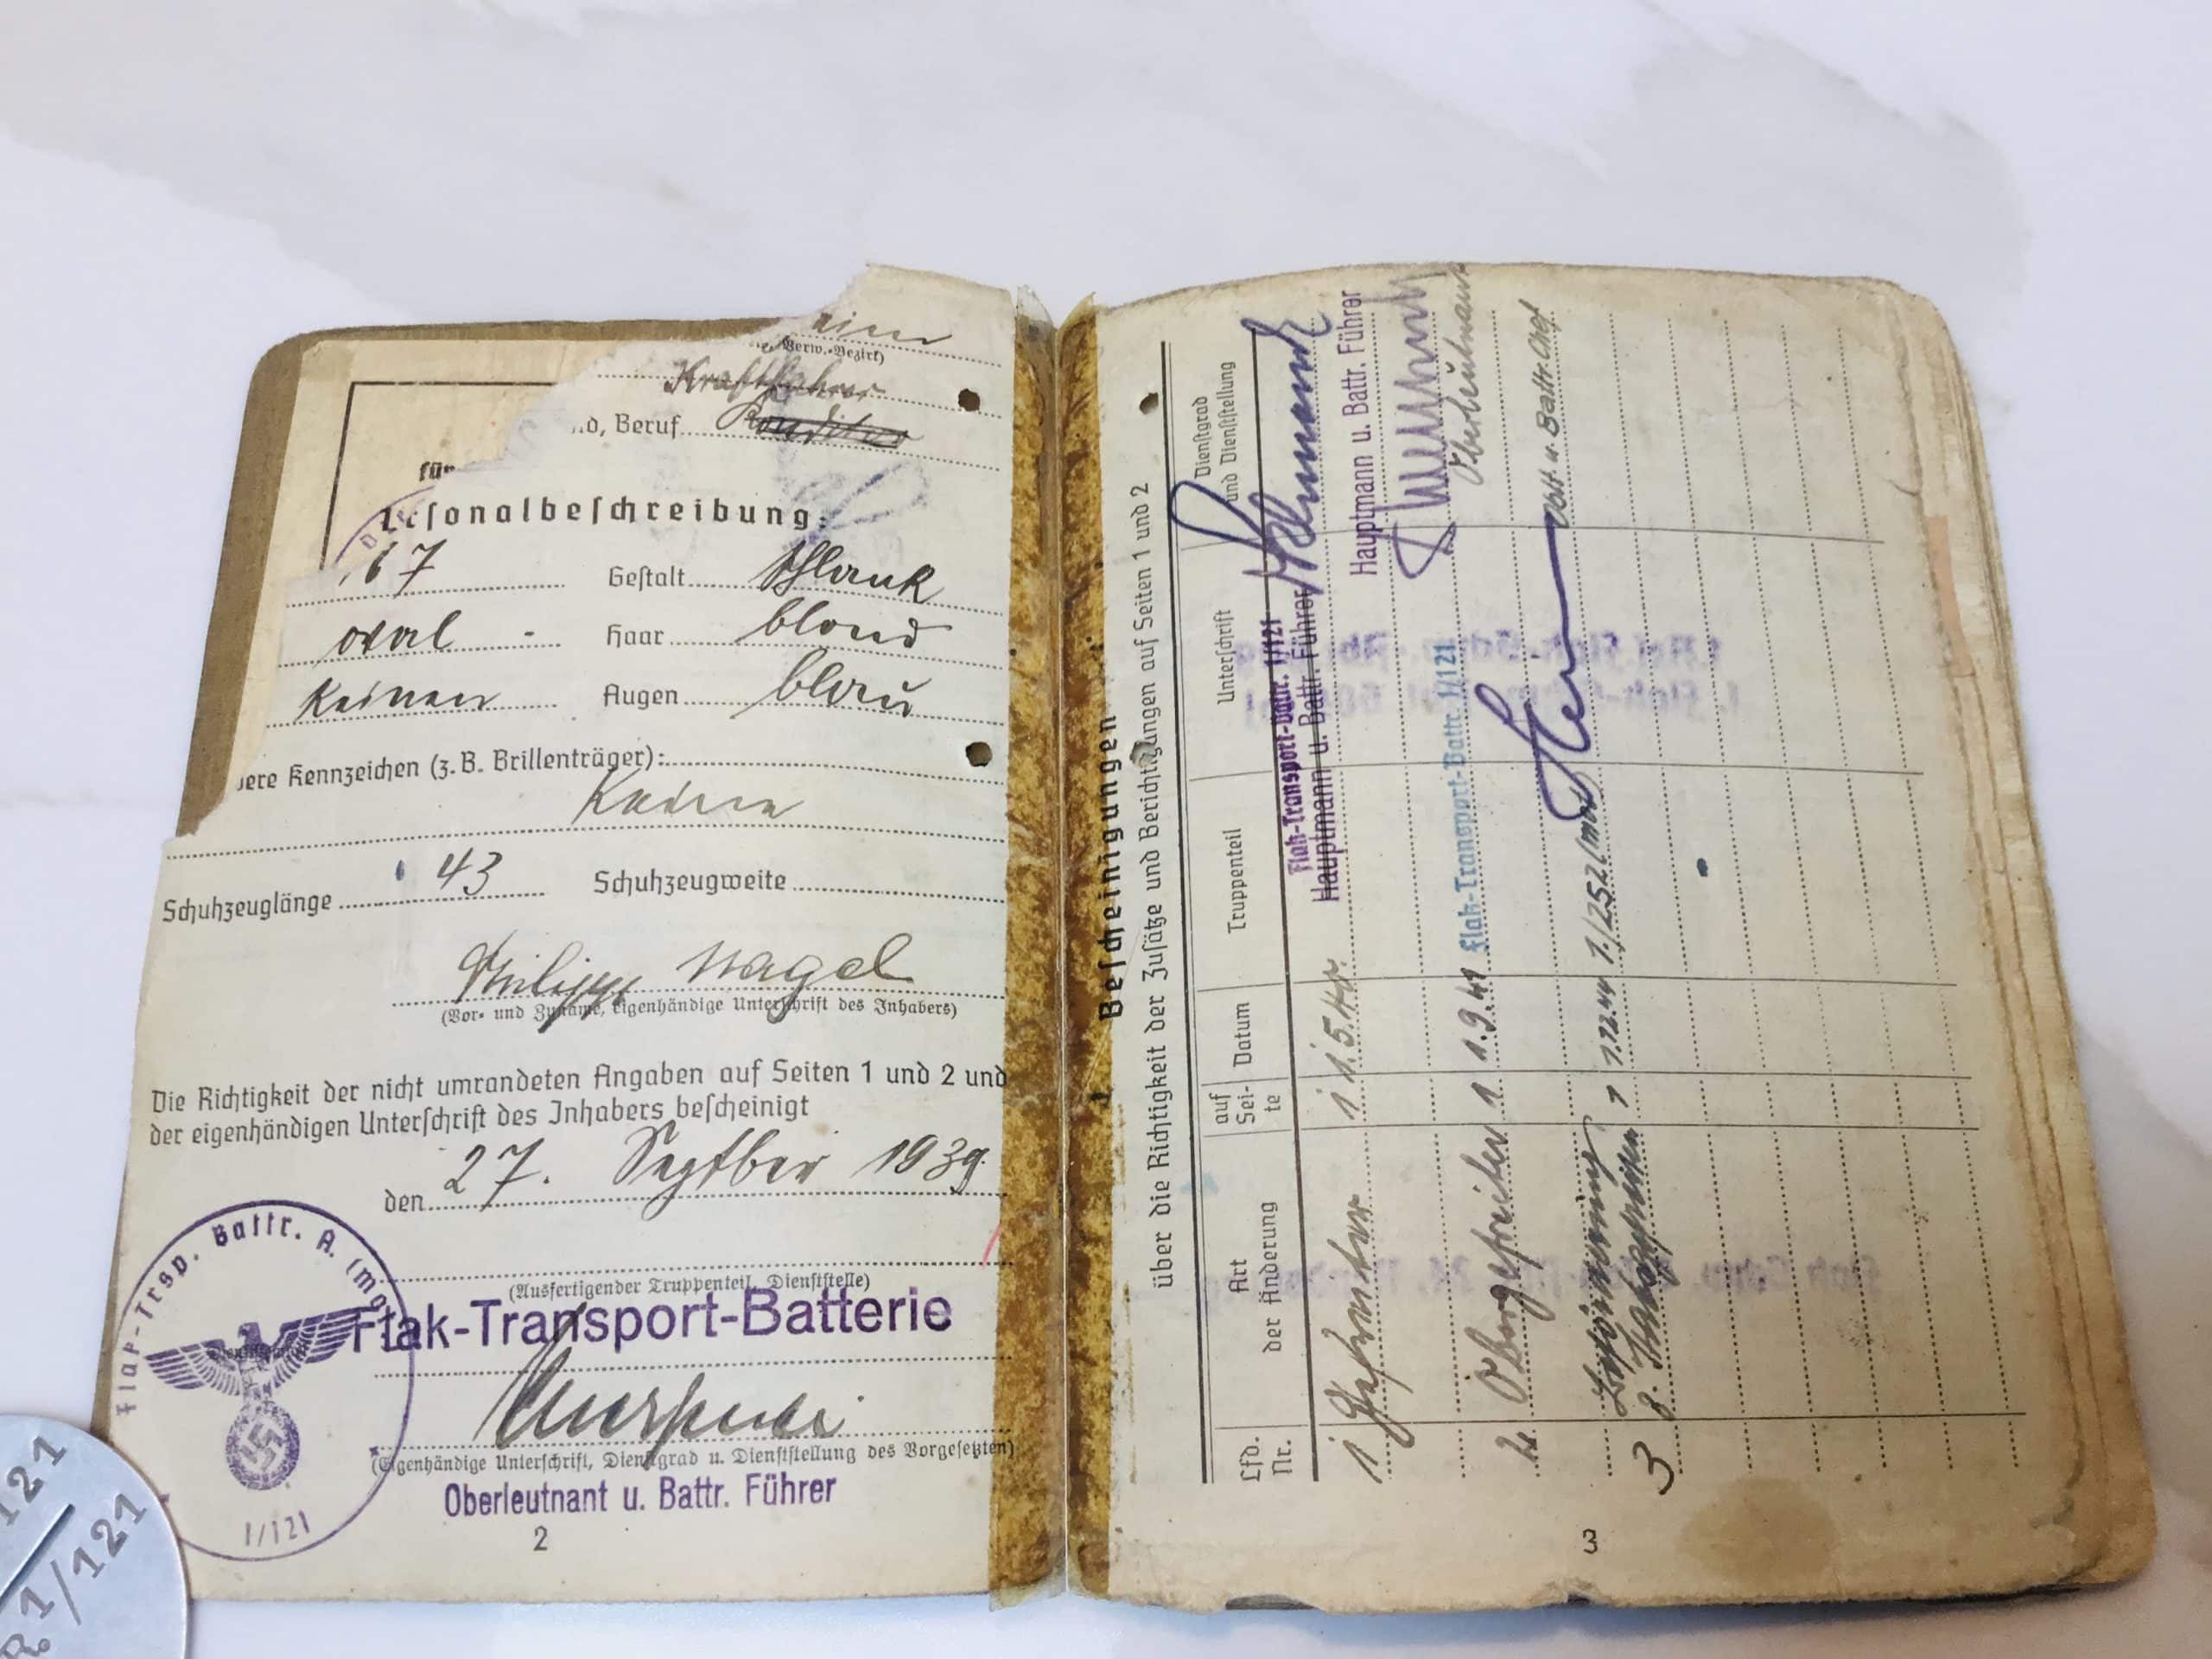 Verw.-Bezirk)
Kraftfahrer
Beruf
für
Personalbeschreibung:
167 Gestalt schlank
oval - Haar blond
Keinen Augen blau
Kennzeichen (z. B. Brillenträger):
Keine
Schuhzeuglänge 43 Schuhzeugweite
Philipp Nagel
(Vor- und Zuname, eigenhändige Unterschrift des Inhabers)
Die Richtigkeit der nicht umrandeten Angaben auf Seiten 1 und 2 und
der eigenhändigen Unterschrift des Inhabers bescheinigt
den 27. Septber 1939.
(Ausfertigender Truppenteil, Dienststelle)
Flak-Transport-Batterie
(Eigenhändige Unterschrift, Dienstgrad u. Dienststellung des Vorgesetzten)
Oberleutnant u. Battr. Führer
2
Flak-Trsp. Battr. A. (mot
1/121
Bescheinigungen
über die Richtigkeit der Zusätze und Berichtigungen auf Seiten 1 und 2
Lfd. Nr. Art der Änderung auf Seite Datum Truppenteil Unterschrift Dienstgrad und Dienststellung
Flak-Transport-Battr. 1/121
Hauptmann u. Battr. Führer
1 Gefreiter 1 1.5.40.
Hauptmann u. Battr. Führer
2. Obergefreiter 1 1.9.41 Flak-Transport-Battr. 1/121 Oberleutnant
3 1 1.12.44 1./252 (mot) Oblt. u. Battr. Chef
3
121
R.1/121